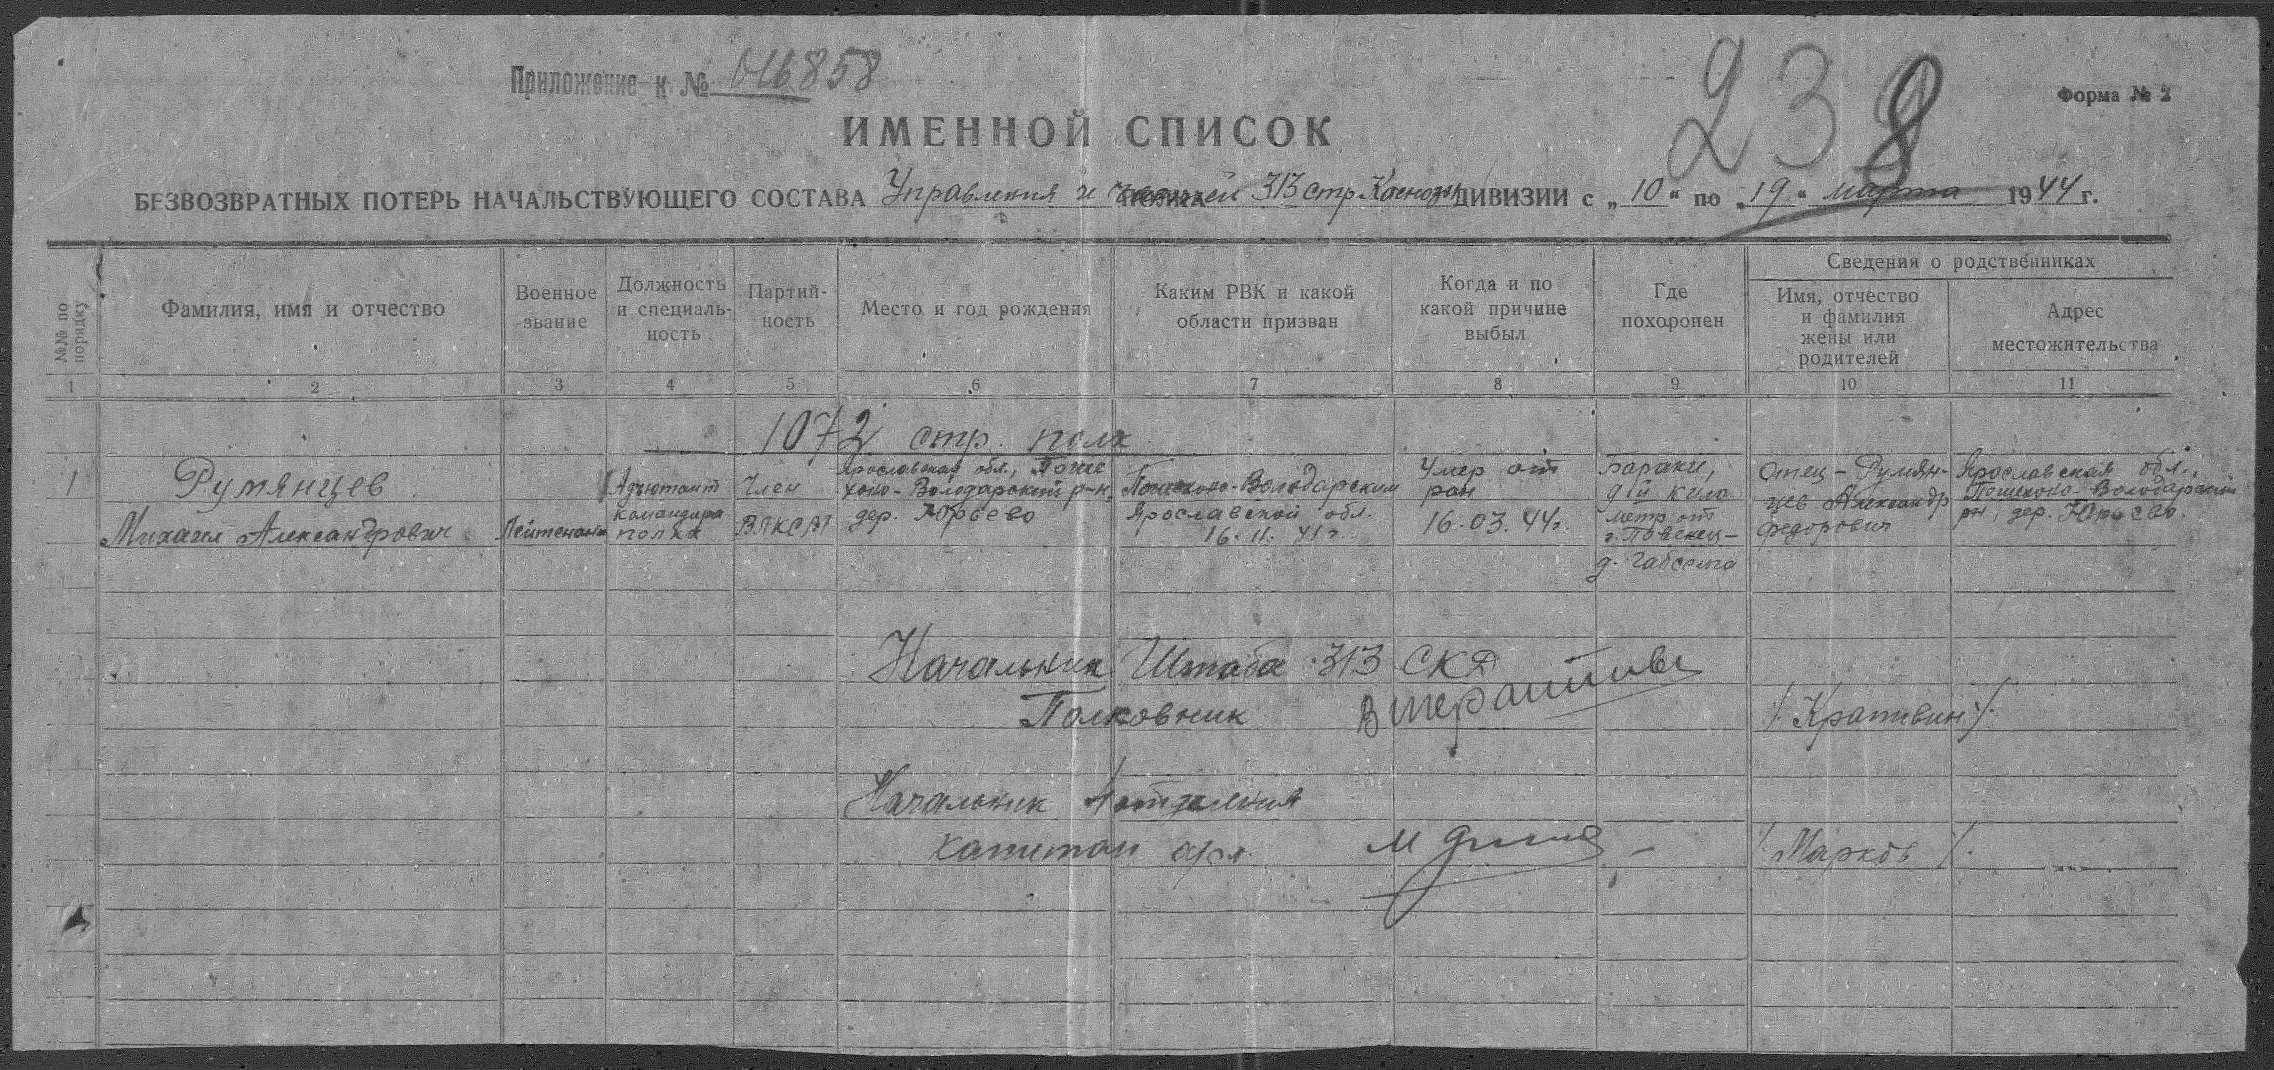 Приложение к № 016858
238
Форма № 2
ИМЕННОЙ СПИСОК
БЕЗВОЗВРАТНЫХ ПОТЕРЬ НАЧАЛЬСТВУЮЩЕГО СОСТАВА Управления и частей 313 стр Краснозн ДИВИЗИИ с „10“ по „19“ марта 1944 г.
№№ по порядку
Фамилия, имя и отчество
Военное звание
Должность и специальность
Партий-
ность
Место и год рождения
Каким РВК и какой
области призван
Когда и по
какой причине
выбыл
Где
похоронен
Сведения о родственниках
Имя, отчество
и фамилия
жены или
родителей
Адрес
местожительства
1 2 3 4 5 6 7 8 9 10 11
1072 стр. полк
1
Румянцев
Михаил Александрович
Лейтенант
Адъютант
командира
полка
Член
ВЛКСМ
Ярославская обл., Поше
хоно-Володарский р-н,
дер. Юрьево
Пошехоно-Володарским
Ярославской обл.
16.11.41 г.
Умер от
ран
16.03.44 г.
Бараки,
9й кило
метр от
г. Повенец-
д. Габсельга
Отец - Румян-
цев Александр
Федорович
Ярославская обл.,
Пошехоно-Володарский
рн, дер. Юрьево.
Начальник Штаба 313 СКД
Полковник
/Крапивин/.
Начальник 4 отделения
капитан а/сл.
/Марков/.